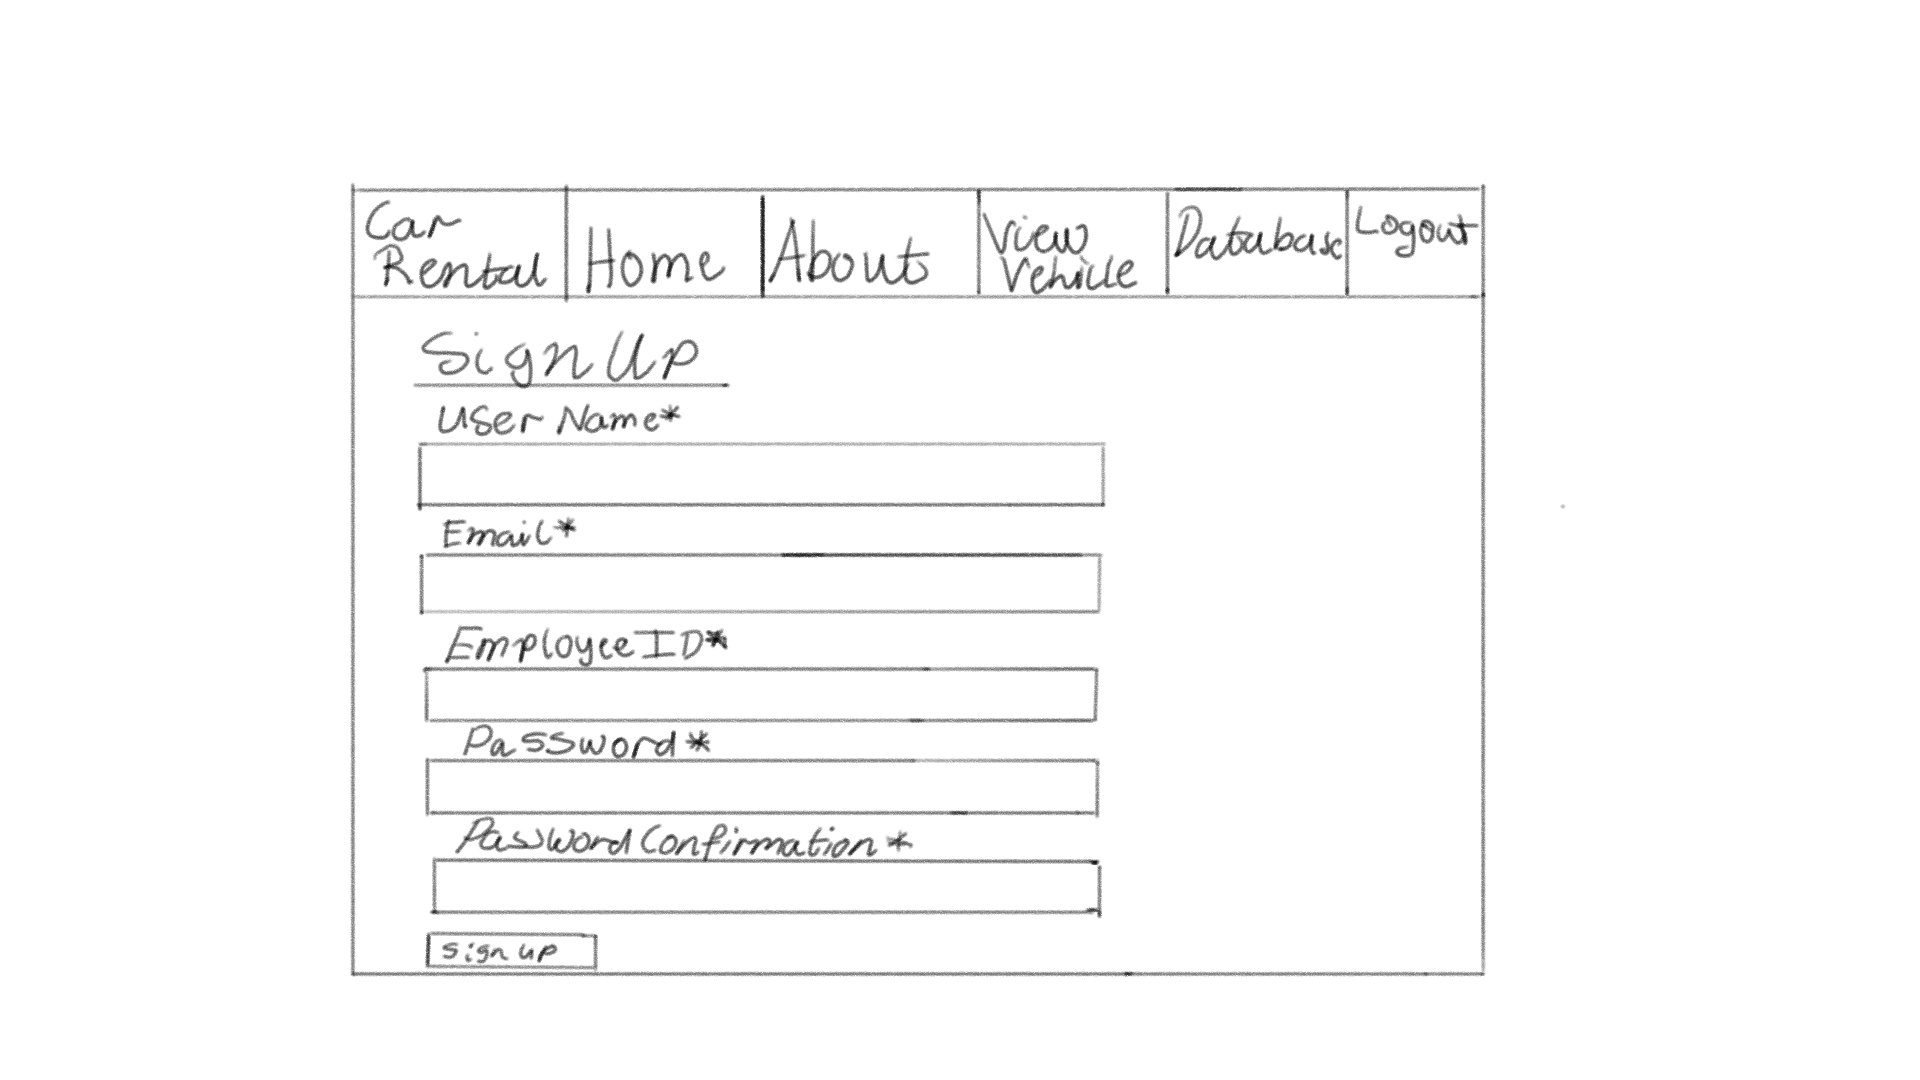 Car
Rental
Home
About
View
Vehicle
Database
Logout
Sign Up
User Name*
Email*
Employee ID*
Password*
Password Confirmation*
sign up